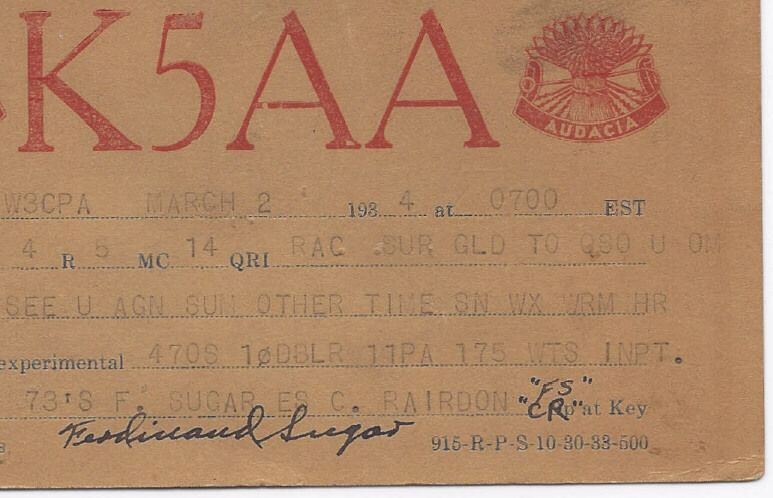 K5AA
AUDACIA
W3CPA MARCH 2 1934 at 0700 EST
4 R 5 MC 14 QRI RAC SUR GLD TO QSO U OM
SEE U AGN SUM OTHER TIME SN WX WRM HR
experimental 47OS 1øDBLR 11PA 175 WTS INPT.
"FS"
73'S F. SUGAR ES C. RAIRDON "CR" Op at Key
Ferdinand Sugar 915-R-P-S-10-30-33-500